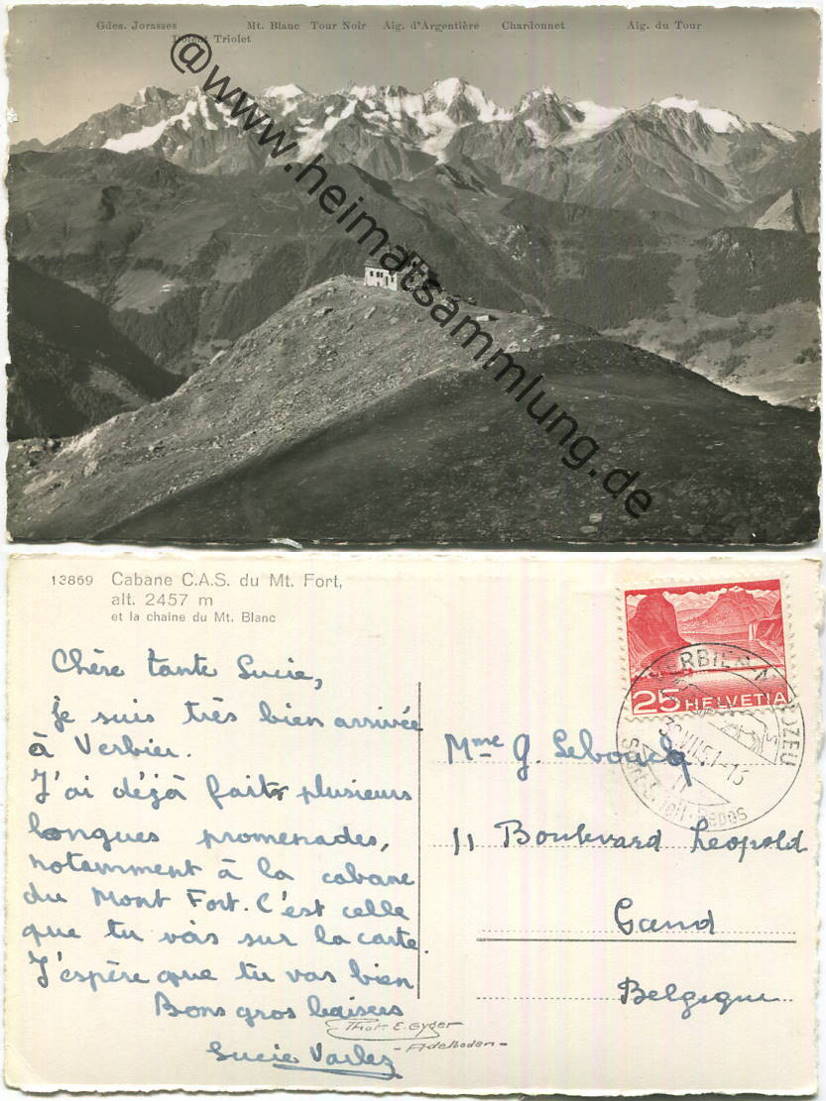 Gdes. Jorasses Mt. Blanc Tour Noir Aig. d'Argentière Chardonnet Aig. du Tour
Dolent Triolet
@www.heimatsammlung.de
13869 Cabane C.A.S. du Mt. Fort,
alt. 2457 m
et la chaine du Mt. Blanc
Chère tante Lucie,
Je suis très bien arrivée
à Verbier.
J'ai déjà fait plusieurs
longues promenades,
notamment à la cabane
du Mont Fort. C'est celle
que tu vois sur la carte.
J'espère que tu vas bien
Bons gros baisers
Lucie Varlez
Phot. E. Gyger
- Adelboden -
25 HELVETIA
VERBIER
Sport. Repos
Mme G. Leboucq
11 Boulevard Leopold
Gand
Belgique